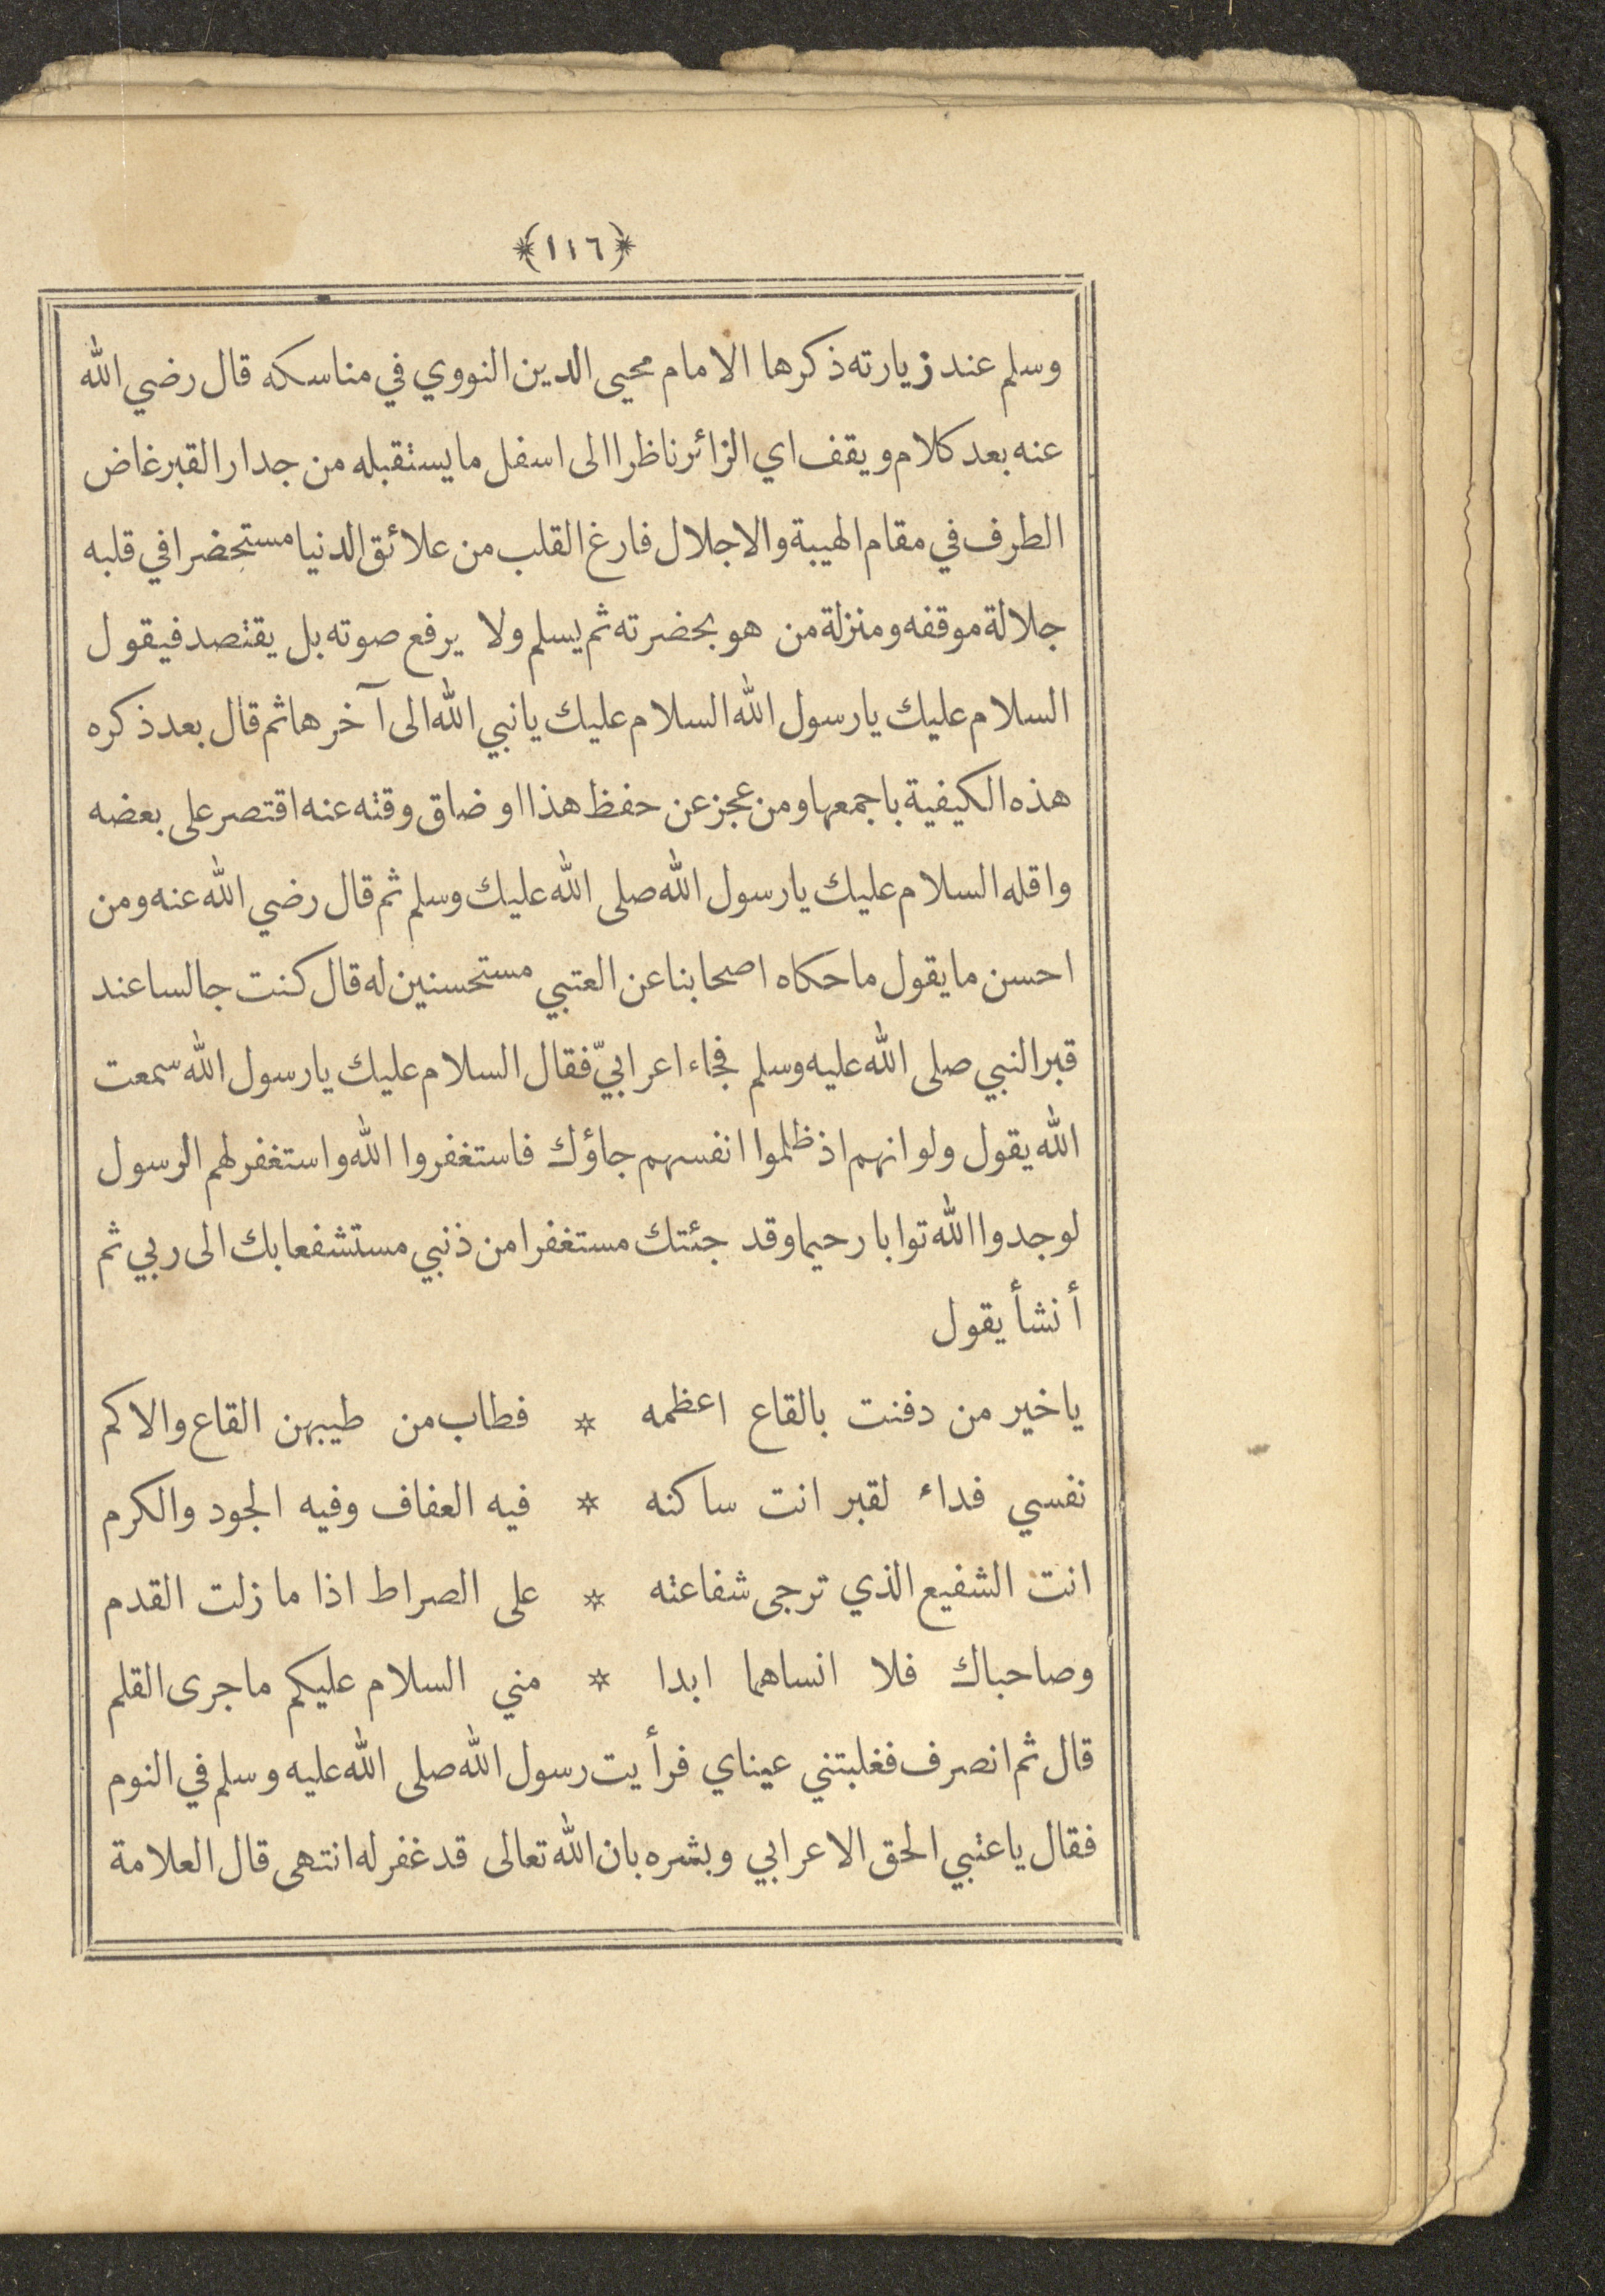 ﴿١١٦﴾
وسلم عند زيارته ذكرها الامام محيى الدين النووي في مناسكه قال رضي الله
عنه بعد كلام ويقف اي الزائر ناظرا الى اسفل ما يستقبله من جدار القبر غاض
الطرف في مقام الهيبة والاجلال فارغ القلب من علائق الدنيا مستحضرا في قلبه
جلالة موقفه ومنزلة من هو بحضرته ثم يسلم ولا يرفع صوته بل يقتصد فيقول
السلام عليك يا رسول الله السلام عليك يا نبي الله الى آخرها ثم قال بعد ذكره
هذه الكيفية باجمعها ومن عجز عن حفظ هذا او ضاق وقته عنه اقتصر على بعضه
واقله السلام عليك يا رسول الله صلى الله عليك وسلم ثم قال رضي الله عنه ومن
احسن ما يقول ما حكاه اصحابنا عن العتبي مستحسنين له قال كنت جالسا عند
قبر النبي صلى الله عليه وسلم فجاء اعرابيّ فقال السلام عليك يا رسول الله سمعت
الله يقول ولو انهم اذ ظلموا انفسهم جاؤك فاستغفروا الله واستغفر لهم الرسول
لوجدوا الله توابا رحيما وقد جئتك مستغفرا من ذنبي مستشفعا بك الى ربي ثم
أنشأ يقول
يا خير من دفنت بالقاع اعظمه * فطاب من طيبهن القاع والاكم
نفسي فداء لقبر انت ساكنه * فيه العفاف وفيه الجود والكرم
انت الشفيع الذي ترجى شفاعته * على الصراط اذا ما زلت القدم
وصاحباك فلا انساهما ابدا * مني السلام عليكم ما جرى القلم
قال ثم انصرف فغلبتني عيناي فرأيت رسول الله صلى الله عليه وسلم في النوم
فقال يا عتبي الحق الاعرابي وبشره بان الله تعالى قد غفر له انتهى قال العلامة